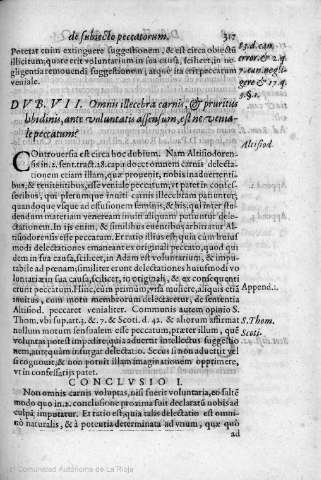 de subiecto peccatorum. 317
Poterat enim extinguere suggestionem, & est circa obiectũ
illicitum, quare erit voluntarium in sua causa, scilicet, in ne
gligentia remouendi suggestionem, atque ita erit peccatum
veniale.
DVB. VII. Omnis illecebra carnis, & pruritus
libidinis, ante voluntatis assensum, est ne venia-
le peccatum?
COntrouersia est circa hoc dubium. Nam Altisiodoren-
sis in. 2. sent. tract. 28. cap. docet omnem carnis delecta-
tionem etiam illam, quæ prouenit, nobis inaduertenti-
bus, & renitentibus, esse veniale peccatum, vt patet in
soribus, qui plerumque inuiti carnis illecebram patiuntur,
quandoque vsque ad effusionem seminis, & his, qui inter
dum materiam veneream inuiti aliquam patiuntur in de-
lectationem. In ijs enim, & similibus euentibus arbitratur Al-
tisiodorensis esse peccatum. Et ratio illius est, quia cum huius
modi delectationes emaneant ex originali peccato, quod qui
dem in sua causa, scilicet, in Adam est voluntarium, & impu-
tabile ad pœnam, similiter erunt delectationes huiusmodi vo
luntariæ in sua causa, scilicet, in originali, & ex consequenti
erunt peccatum. Hinc, cum primum, visa muliere, aliquis etiã
inuitus, cum motu membrorum delectaretur, de sententia
Altisiod. peccaret venialiter. Communis autem opinio S.
Thom. vbi sup. art. 4. 7. & Scoti. d. 42. & aliorum affirmat
nullum motum sensualem esse peccatum, præter illum, quẽ
voluntas potest impedire, quia aduertit intellectus suggestio
nem, aut equam insurgat delectatio. Secus si non aduertit, vel
si cognouit, & non potuit illam imaginationem opprimere,
vt in confessarijs patet.
CONCLVSIO I.
Non omnis carnis voluptas, nisi fuerit voluntaria, eo saltẽ
modo quo in. 2. conclusione proxima fuit declaratũ nobis ad
culpã, imputatur. Et ratio est, quia talis delectatio est omni-
nò naturalis, & à potentia determinata ad vnum, quæ quo
ad
error. & 2. q.
gere & 17. q.
Altisiod.
Append. 1.
S. Thom.
Scoti.
Comunidad Autónoma de La Rioja